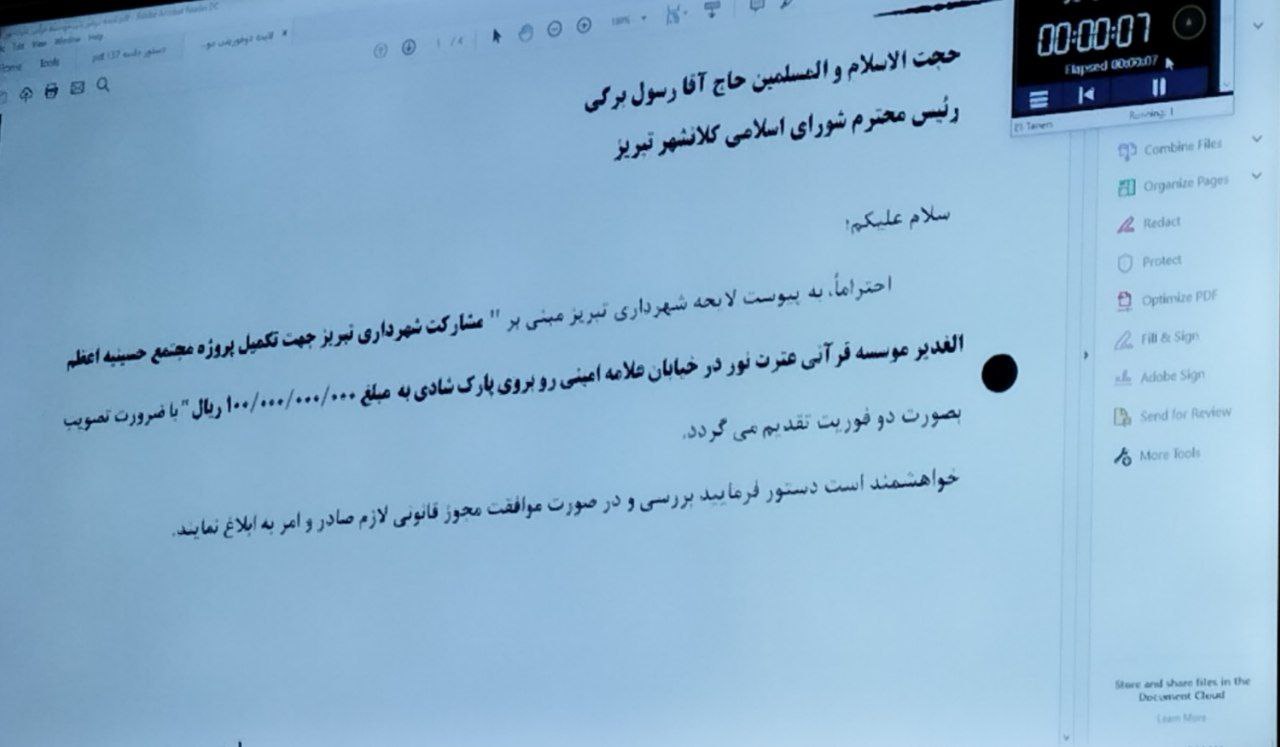 Adobe Acrobat Reader DC
Edit View Window Help
Home Tools
دستور جلسه 137.pdf
لایحه دوفوریتی مو...
1 / 4
00:00:07
Elapsed 00:00:07
Running: 1
حجت الاسلام و المسلمین حاج آقا رسول برگی
رئیس محترم شورای اسلامی کلانشهر تبریز
سلام علیکم؛
احتراماً، به پیوست لایحه شهرداری تبریز مبنی بر " مشارکت شهرداری تبریز جهت تکمیل پروژه مجتمع حسینیه اعظم
الغدیر موسسه قرآنی عترت نور در خیابان علامه امینی رو بروی پارک شادی به مبلغ ۱۰۰/۰۰۰/۰۰۰/۰۰۰ ریال" با ضرورت تصویب
بصورت دو فوریت تقدیم می گردد.
خواهشمند است دستور فرمایید بررسی و در صورت موافقت مجوز قانونی لازم صادر و امر به ابلاغ نمایند.
Combine Files
Organize Pages
Redact
Protect
Optimize PDF
Fill & Sign
Adobe Sign
Send for Review
More Tools
Store and share files in the
Document Cloud
Learn More